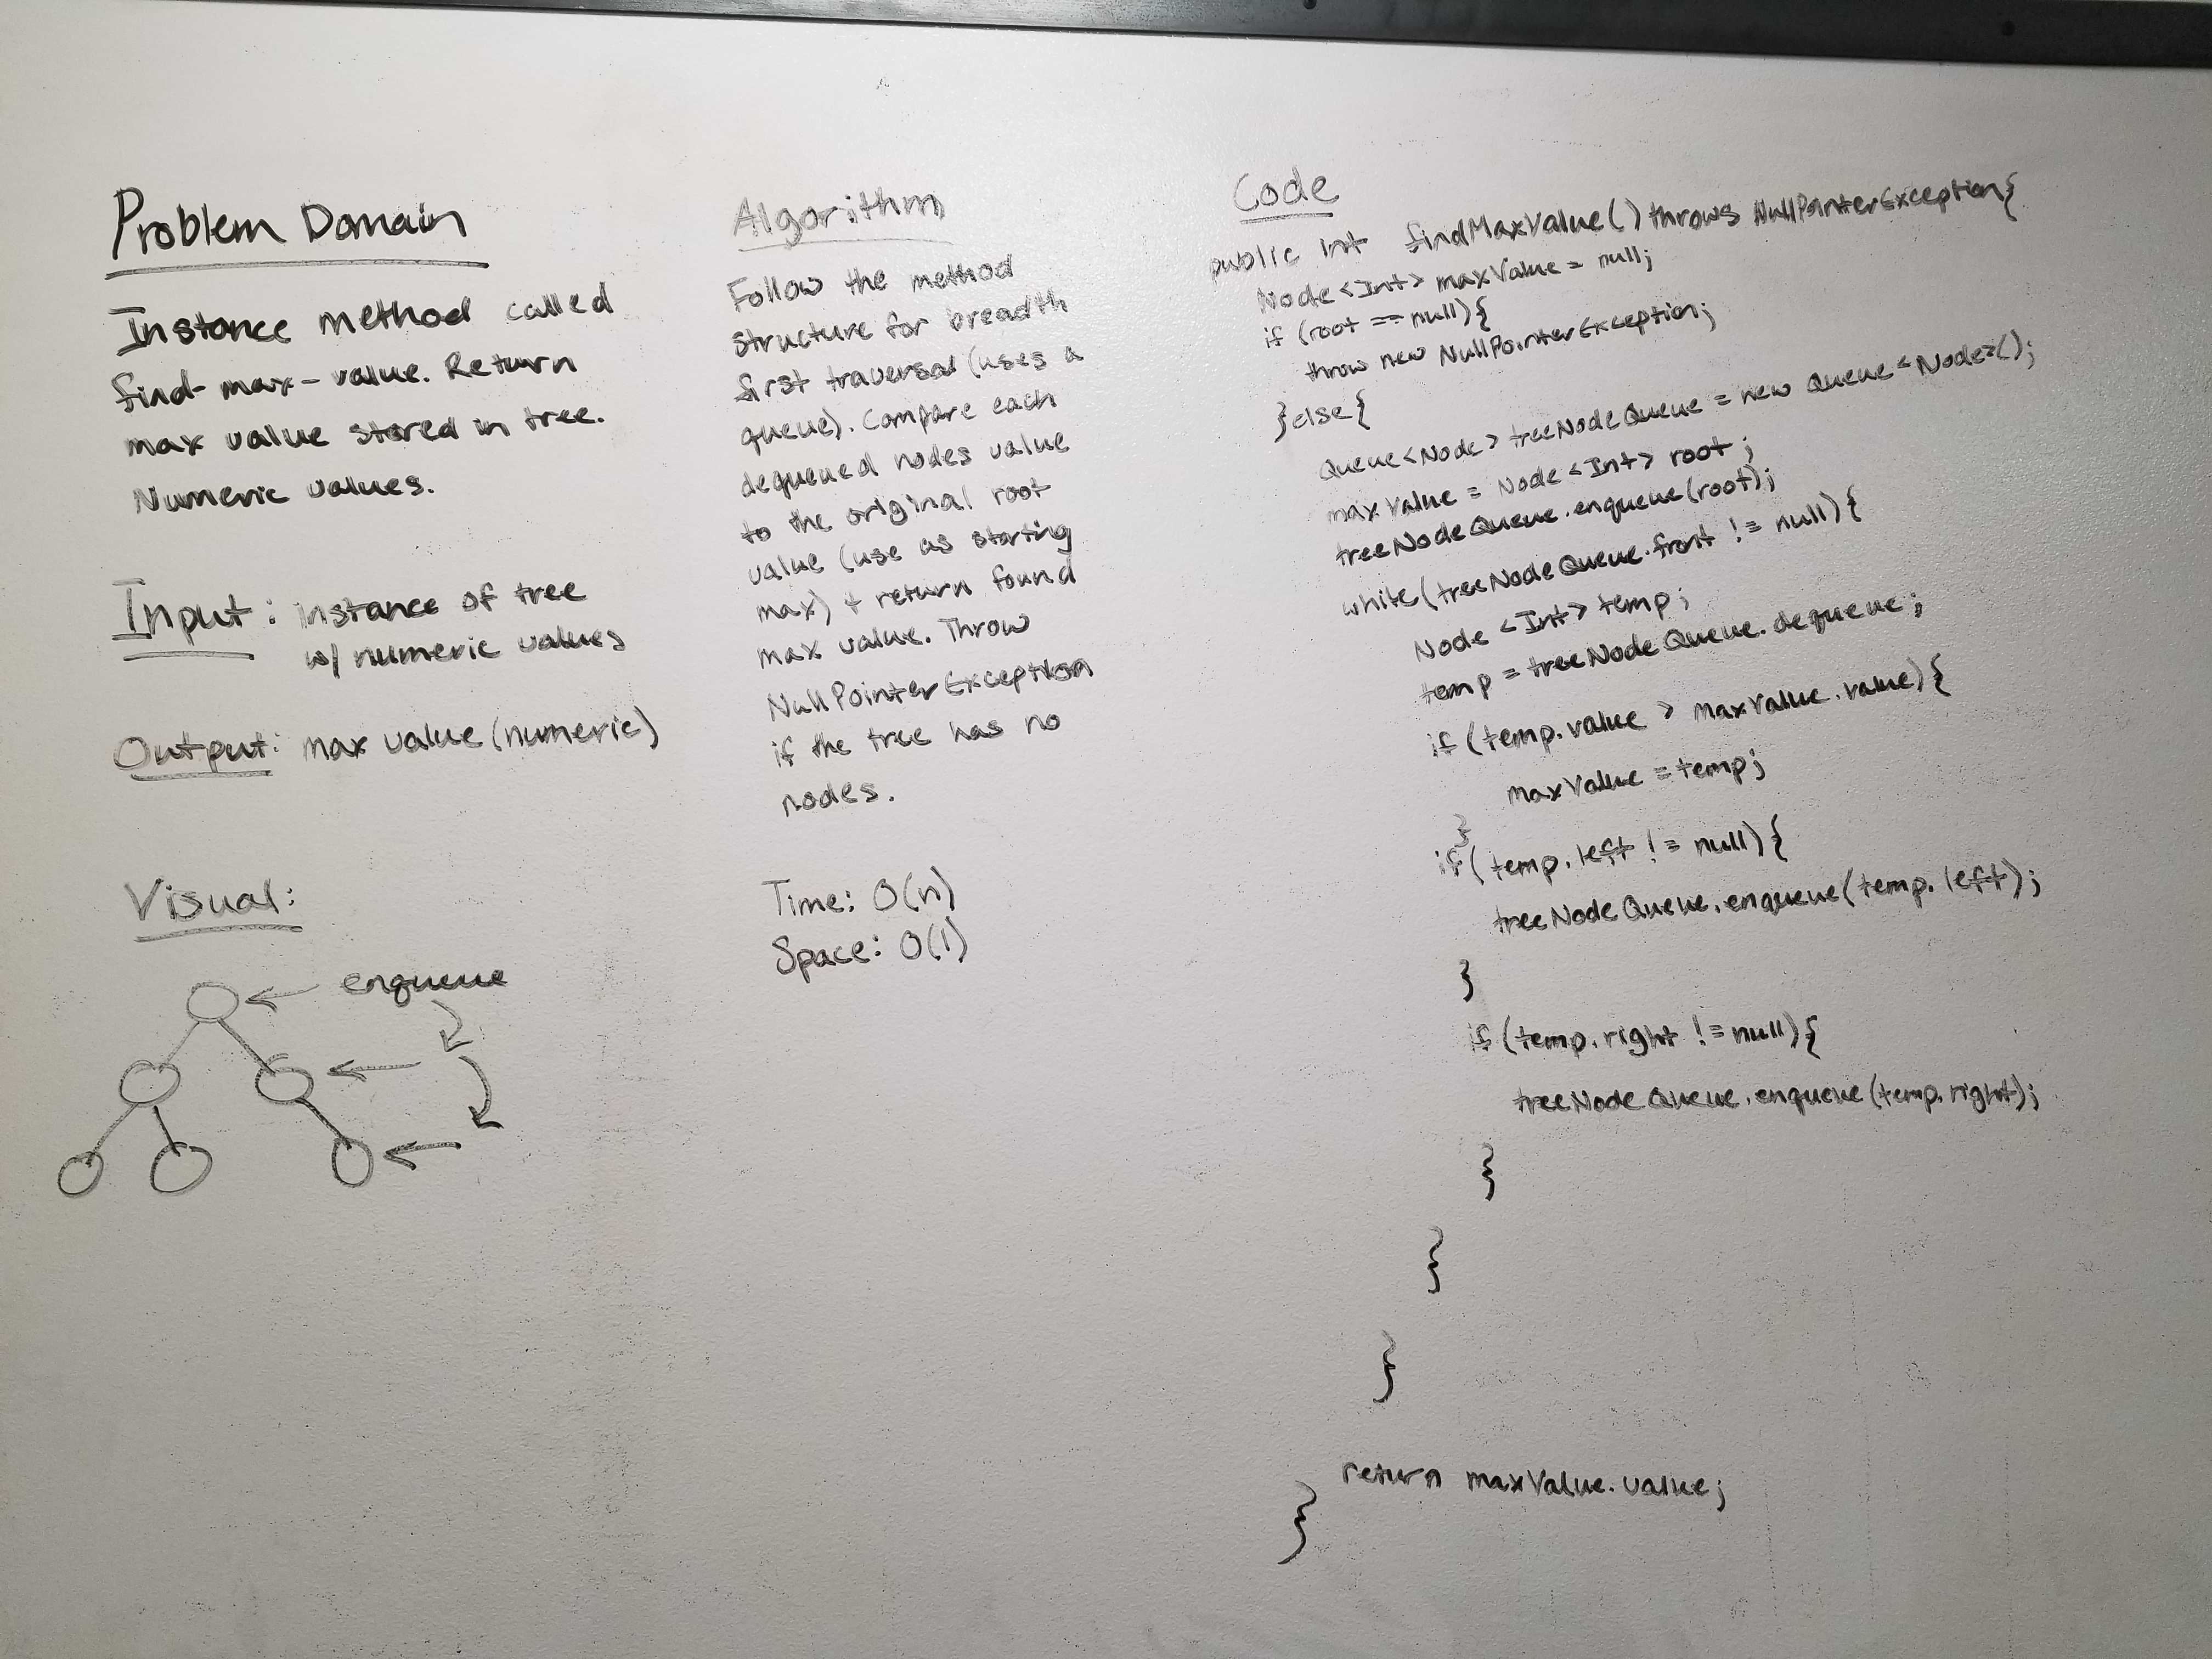 Problem Domain
Instance method called
find-max-value. Return
max value stored in tree.
Numeric values.
Input: instance of tree
w/ numeric values
Output: max value (numeric)
Visual:
enqueue
Algorithm
Follow the method
structure for breadth
first traversal (uses a
queue). Compare each
dequeued nodes value
to the original root
value (use as starting
max) + return found
max value. Throw
NullPointerException
if the tree has no
nodes.
Time: O(n)
Space: O(1)
Code
public int findMaxValue() throws NullPointerException{
Node<Int> maxValue = null;
if (root == null){
throw new NullPointerException;
}else{
Queue<Node> treeNodeQueue = new Queue<Node>();
maxValue = Node<Int> root;
treeNodeQueue.enqueue(root);
while(treeNodeQueue.front != null){
Node <Int> temp;
temp = treeNodeQueue.dequeue;
if (temp.value > maxValue.value){
maxValue = temp;
}
if(temp.left != null){
treeNodeQueue.enqueue(temp.left);
}
if (temp.right != null){
treeNodeQueue.enqueue(temp.right);
}
}
}
return maxValue.value;
}